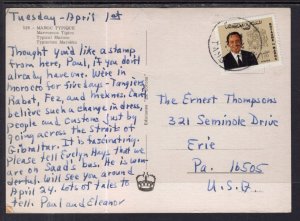 Tuesday-April 1st
MAROC TYPIQUE
Thought you'd like a stamp
from here, Paul, if you don't
already have one. Were in
Morocco for five days-Tangier,
Rabat, Fez, and Meknes. Can't
believe such a change in dress,
people and customs just by
going across the Straits of
Gibraltar. It is fascinating.
Please tell Evelyn Hays that we
are on Saad's bus. He is won-
derful. Will see you around
April 24. Lots of tales to
tell. Paul and Eleanor
The Ernest Thompsons
321 Seminole Drive
Erie
Pa. 16505
U.S.A.